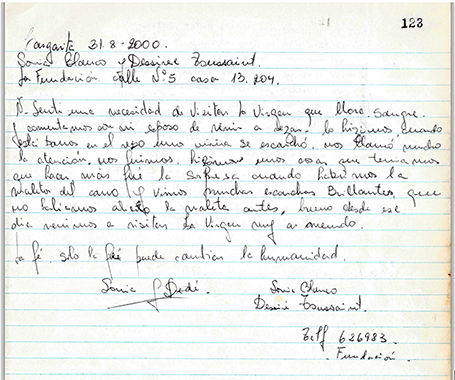 123
Margarita 31-8-2000.
Sonia Blanco y Dessiree Toussaint.
La Fundación calle Nº5 casa 13.204.
N. Senti una necesidad de Visitar la Virgen que llora sangre.
y comentamos con mi esposo de venir a rezar. lo hicimos, cuando
estabamos en el rezo una niñita se escarchó, nos llamó mucho
la atención, nos fuimos, hicimos unas cosas que teniamos
que hacer más fué la sorpresa cuando habrimos la
maleta del carro y vimos muchas escarchas Brillantes, que
no habiamos abierto la maleta antes, bueno desde ese
dia venimos a visitar la Virgen muy a menudo.
La fé, solo la fé puede cambiar la humanidad.
Sonia y Dedé.
Sonia Blanco
Desiré Toussaint.
Telf 626983.
Fundación.